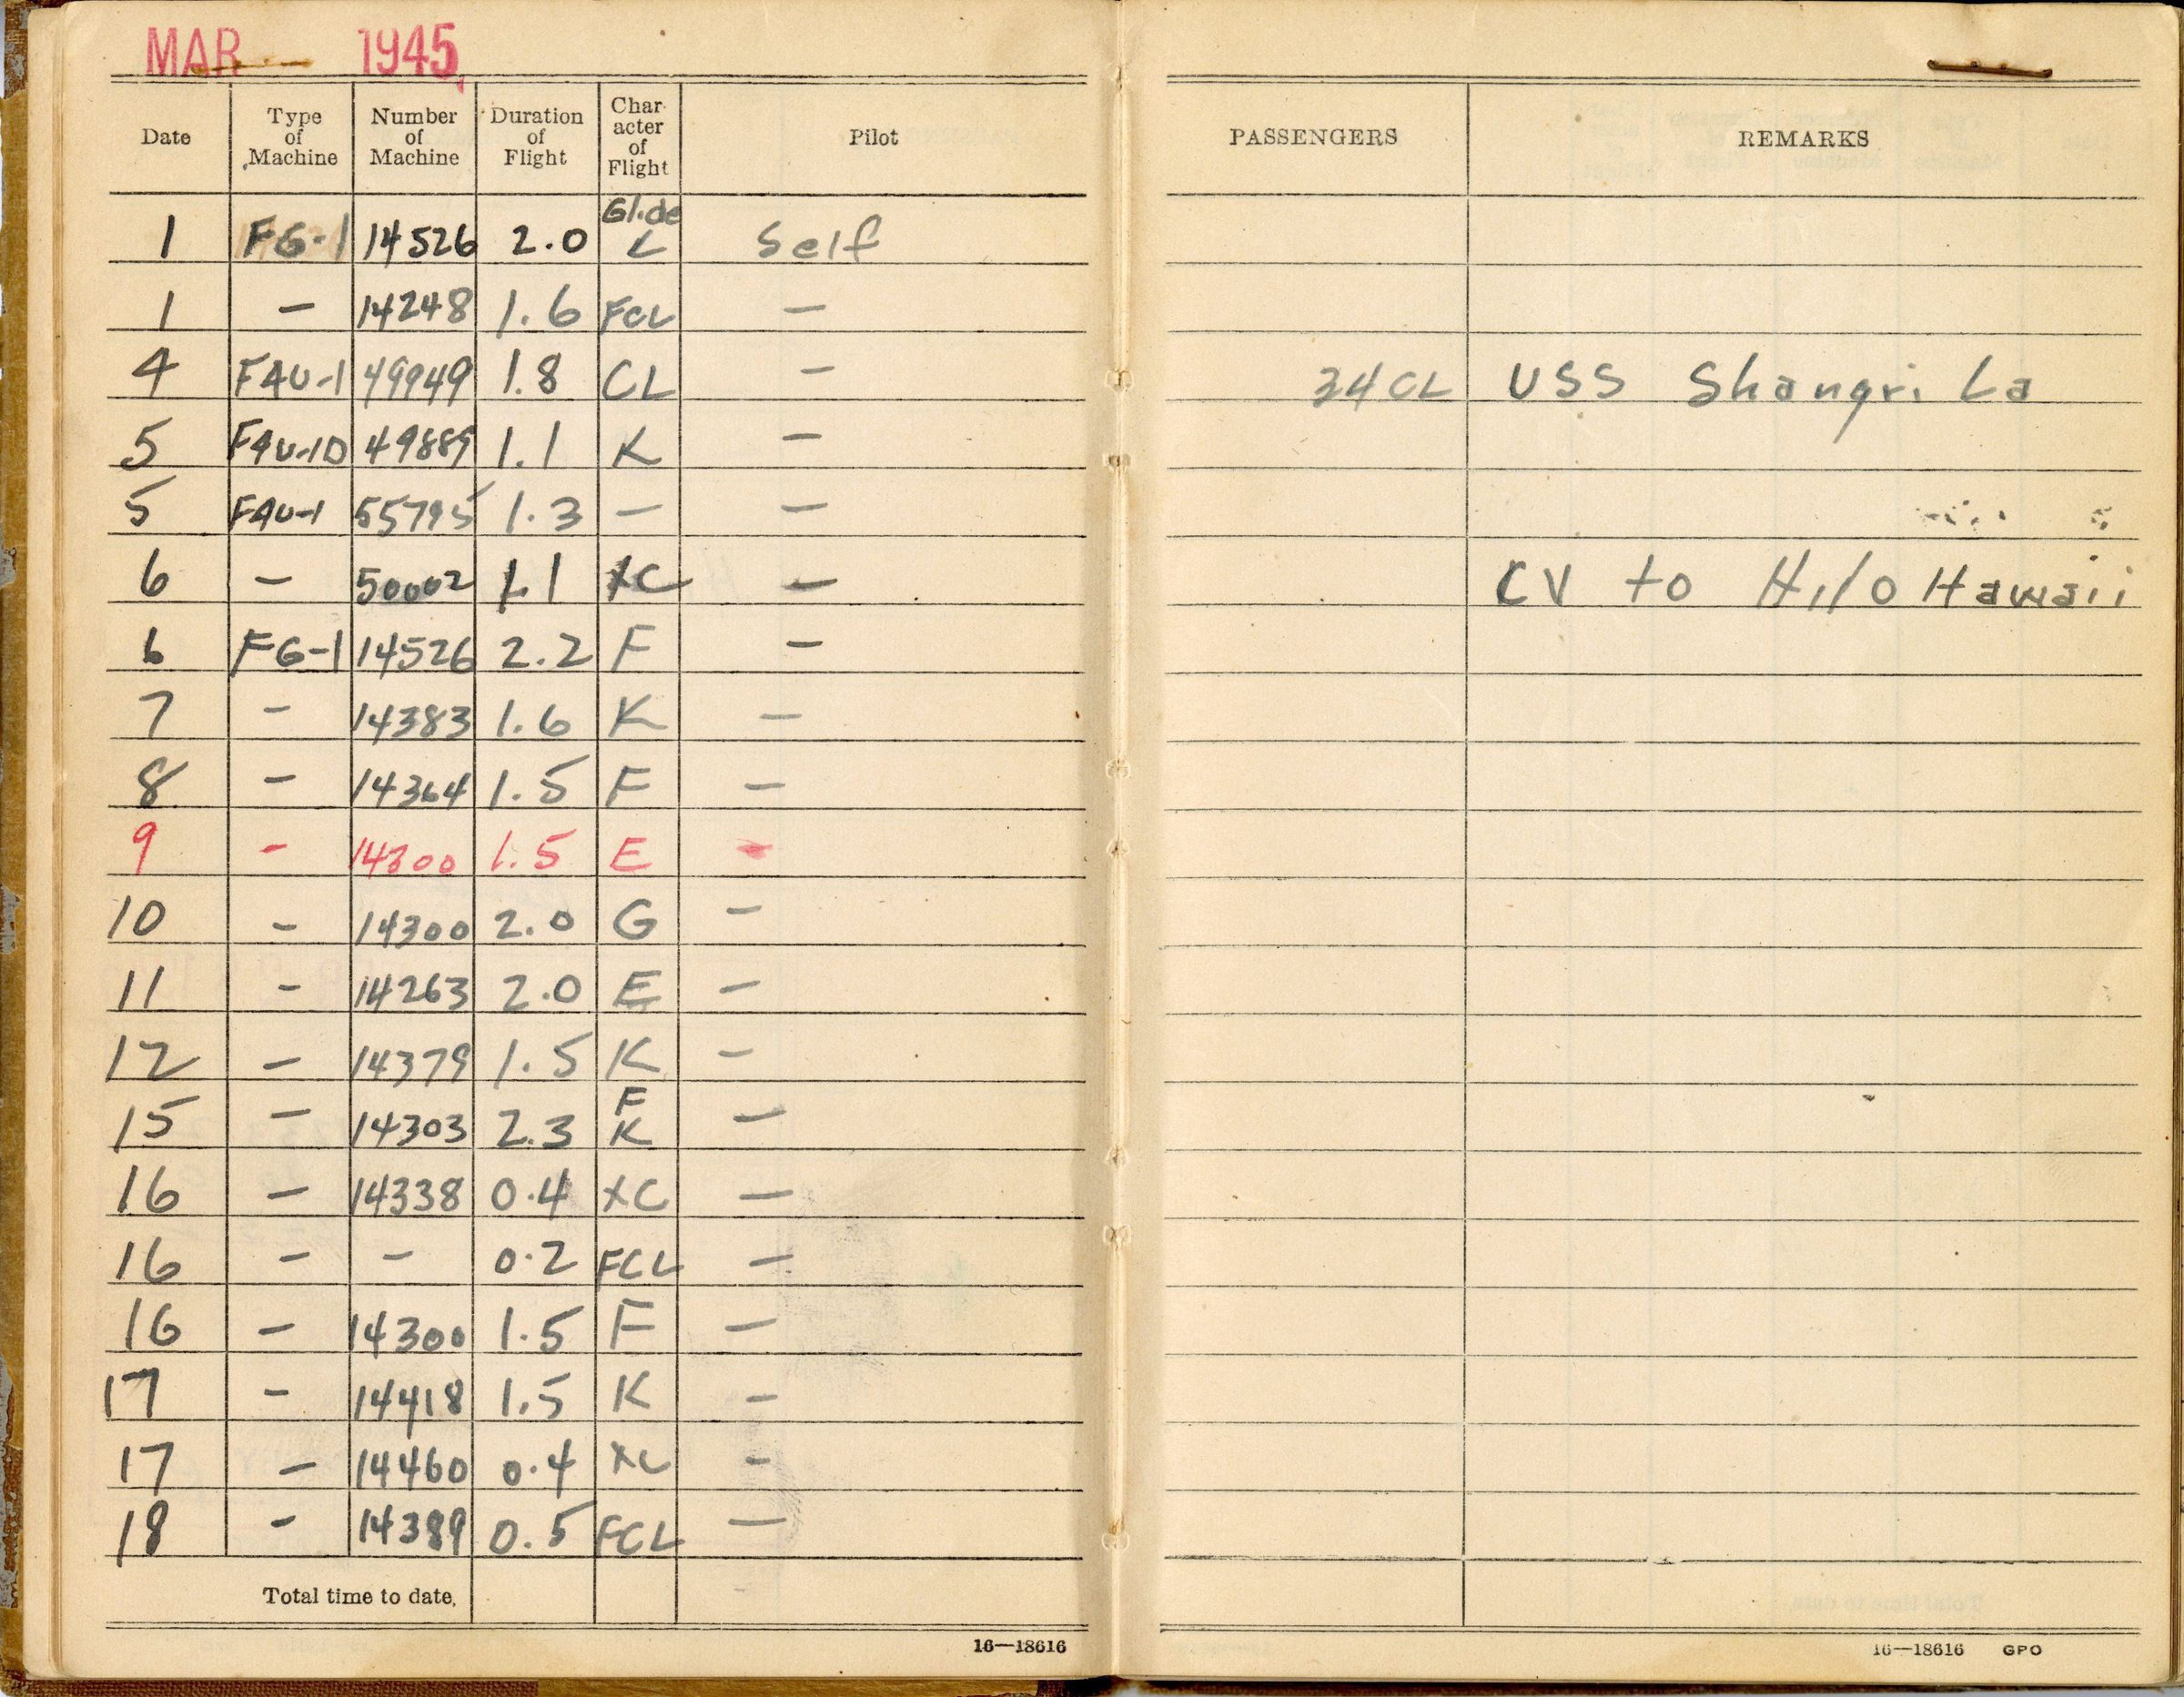 MAR — 1945
Date Type of Machine Number of Machine Duration of Flight Char-acter of Flight Pilot PASSENGERS REMARKS
1 FG-1 14526 2.0 Glide L Self
1 — 14248 1.6 FCL —
4 F4U-1 49949 1.8 CL — 34 CL USS Shangri La
5 F4U-1D 49889 1.1 K —
5 F4U-1 55795 1.3 — —
6 — 50002 1.1 XC — CV to Hilo Hawaii
6 FG-1 14526 2.2 F —
7 — 14383 1.6 K —
8 — 14364 1.5 F —
9 - 14300 1.5 E -
10 — 14300 2.0 G —
11 — 14263 2.0 E —
12 — 14379 1.5 K —
15 — 14303 2.3 F K —
16 — 14338 0.4 XC —
16 — — 0.2 FCL —
16 — 14300 1.5 F —
17 — 14418 1.5 K —
17 — 14460 0.4 XC —
18 — 14389 0.5 FCL —
Total time to date,
16—18616
16—18616 GPO